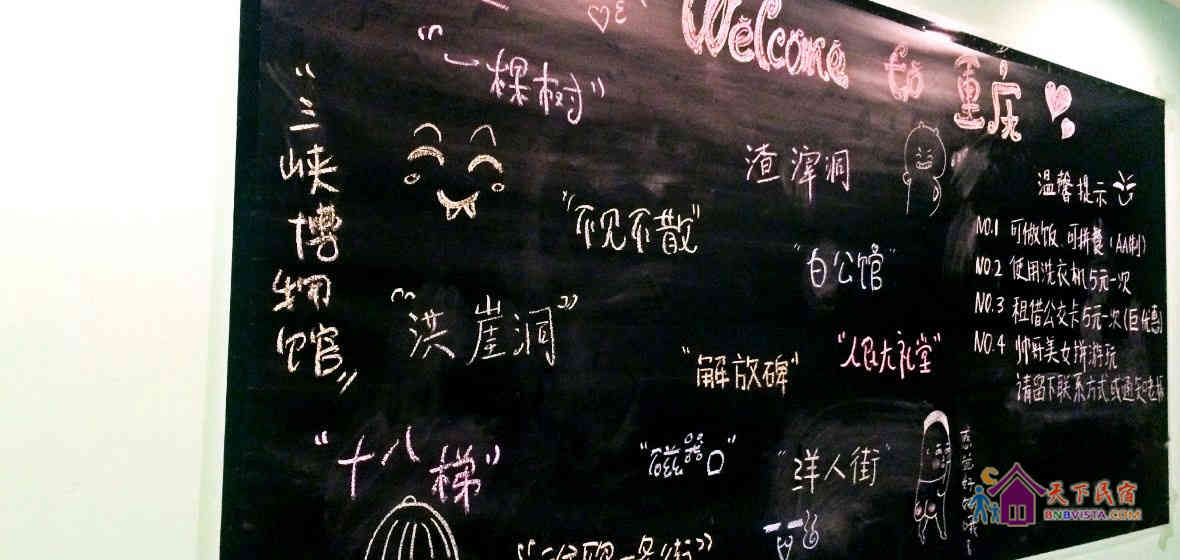 Welcome to 重庆
"一棵树"
"三峡博物馆"
渣滓洞
"不见不散"
"白公馆"
"洪崖洞"
"解放碑"
"人民大礼堂"
"十八梯"
"磁器口"
"洋人街"
温馨提示
NO.1 可做饭 可拼餐 (AA制)
NO.2 使用洗衣机5元一次
NO.3 租借公交卡5元一次(巨优惠)
NO.4 帅哥美女拼游玩
请留下联系方式或通知老板
天下民宿
BNBVISTA.COM